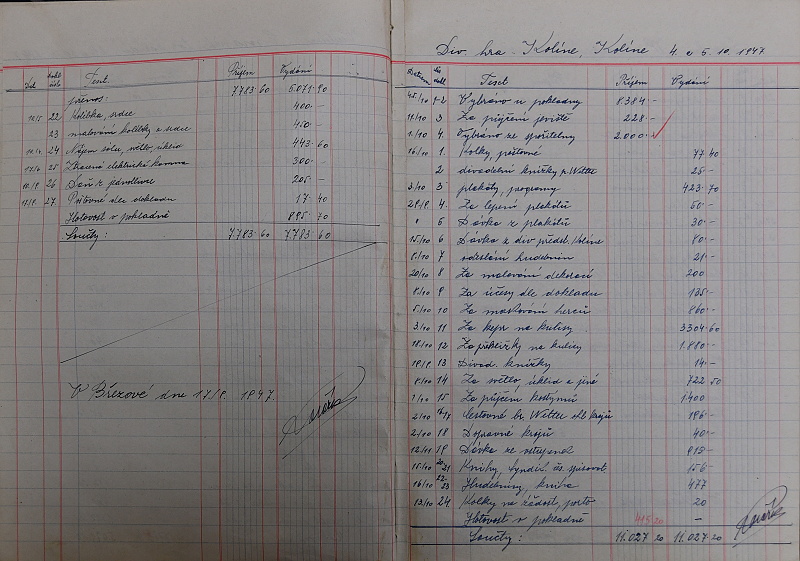 Dat. Dokl. čís. Text. Příjem Vydání
přenos: 7783·60 5.071·90
22 Kolibka, srdce 400·-
23 malování kolíbky a srdce 450·-
24 Nájem sálu, světlo, úklid 443·60
25 elektrická 300·-
26 205·-
27 Poštovné dle dokladu 17·40
Hotovost v pokladně 895·70
Součty: 7.783·60 7.783·60
V Březové dne 17/8. 1947.
Div. hra - Kolíne, Kolíne 4. a 5. 10. 1947
Datum Text Příjem Vydání
1-2 Vybráno u pokladny 8.384·-
3 Za půjčení jeviště 228·-
1/10 4 Vybráno ze spořitelny 2.000·-
16/10 1. Kolky, poštovné 77·40
2 divadelní knížky p. Wetter 25·-
3/10 3 plakáty, programy 423·70
4. Za lepení plakátů 50·-
" 5 Dávka z plakátů 30·-
15/10 6 Dávka z div. předst. Kolíne 80·-
8/10 7 odeslání hudebnin 21·-
20/10 8 Za malování dekorací 200
8/10 9 Za účesy dle dokladu 135·-
5/10 10 Za maskování herců 860·-
3/10 11 Za kepr na kulisy 3304·60
18/10 12 Za překližky na kulisy 1.880·-
13 Divad. knížky 14·-
8/10 14 Za světlo, úklid a jiné 722 50
1/10 15 Za půjčení kostymů 1400
2/10 Cestovné br. Wetter krojů 196·-
2/10 18 Dopravné krojů 40·-
12/11 19 Dávka ze vstupenek 918·-
15/10 20-21 Knihy, 156·-
16/10 22-23 Hudebniny, kniha 477
13/10 24 Kolky na žádost, porto 20
Hotovost v pokladně 415·20 -
Součty: 11.027 20 11.027·20